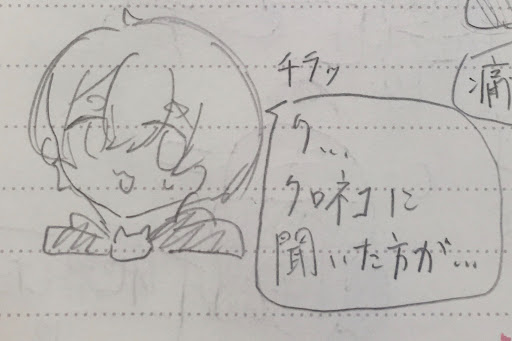 チラッ
ク...
クロネコに
聞いた方が...
痛